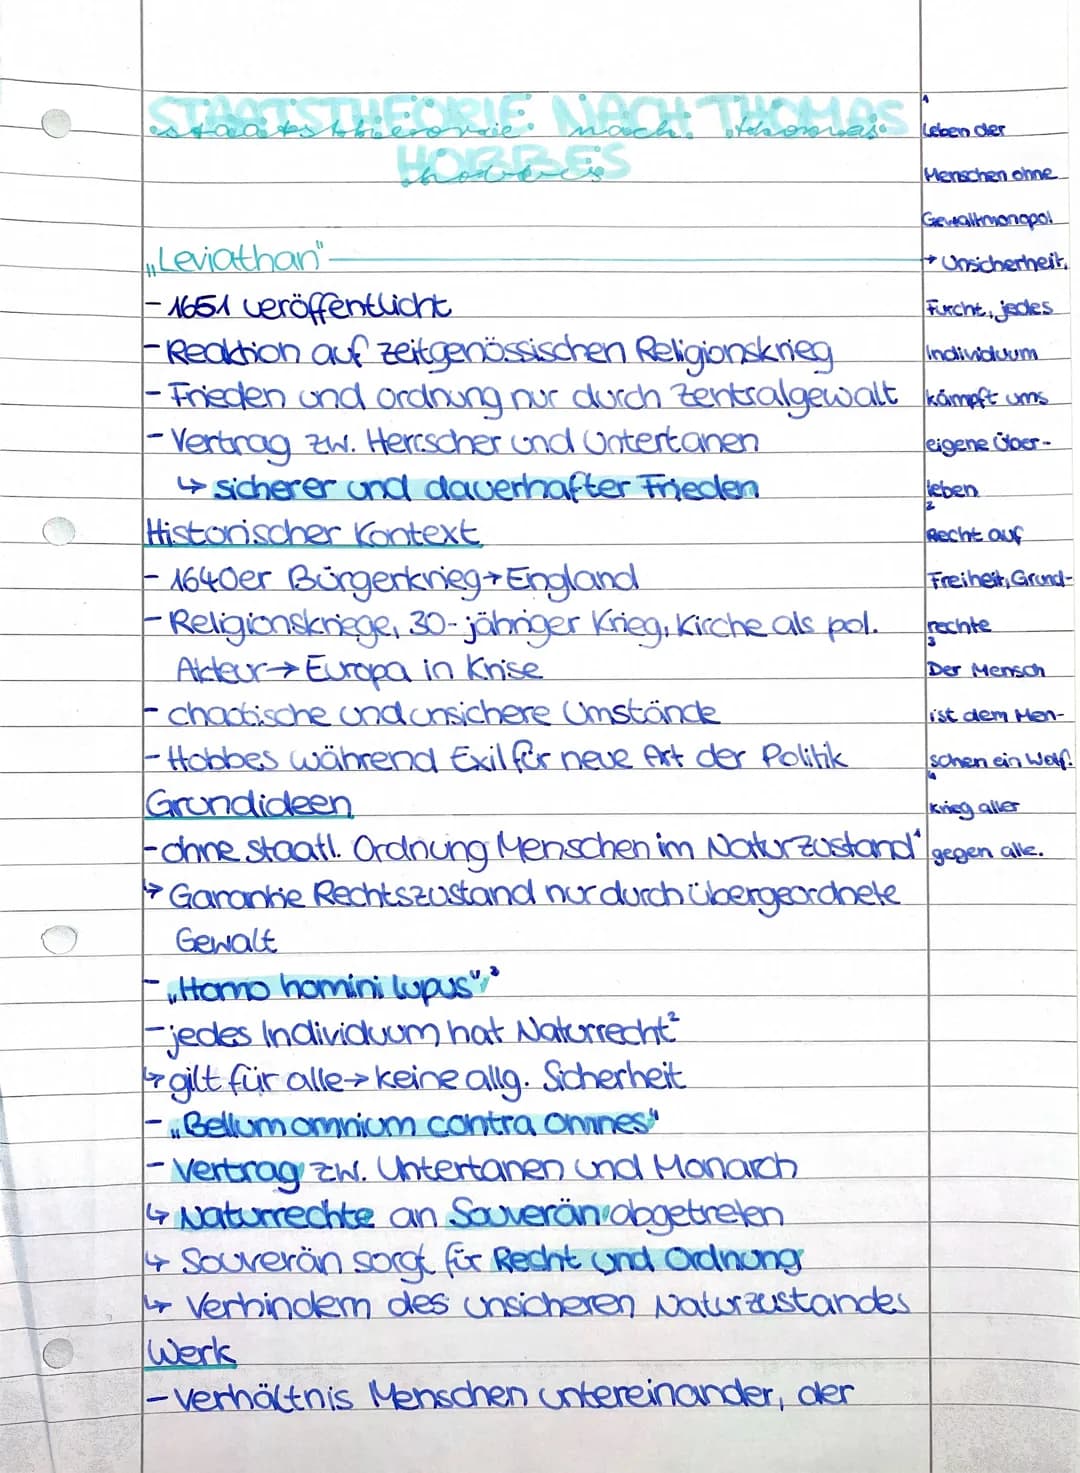 STAATSTHEORIE NACH THOMAS
staatstheorie nach thomas
HOBBES
hobbes
„Leviathan"
- 1651 veröffentlicht
- Reaktion auf zeitgenössischen Religionskrieg
- Frieden und Ordnung nur durch Zentralgewalt
- Vertrag zw. Herrscher und Untertanen
↳ sicherer und dauerhafter Frieden
Historischer Kontext
- 1640er Bürgerkrieg→England
- Religionskriege, 30-jähriger Krieg, Kirche als pol.
Akteur→Europa in Krise
- chaotische und unsichere Umstände
- Hobbes während Exil für neue Art der Politik
Grundideen
- ohne staatl. Ordnung Menschen im Naturzustand¹
↳ Garantie Rechtszustand nur durch übergeordnete
Gewalt
- „Homo homini lupus"³
- jedes Individuum hat Naturrecht²
↳ gilt für alle→keine allg. Sicherheit
- „Bellum omnium contra omnes"⁴
- Vertrag zw. Untertanen und Monarch
↳ Naturrechte an Souverän abgetreten
↳ Souverän sorgt für Recht und Ordnung
↳ Verhindern des unsicheren Naturzustandes
Werk
- Verhältnis Menschen untereinander, der
1
Leben der
Menschen ohne
Gewaltmonopol
→ Unsicherheit,
Furcht, jedes
Individuum
kämpft ums
eigene Über-
leben
2
Recht auf
Freiheit, Grund-
rechte
3
Der Mensch
ist dem Men-
schen ein Wolf.
4
Krieg aller
gegen alle.